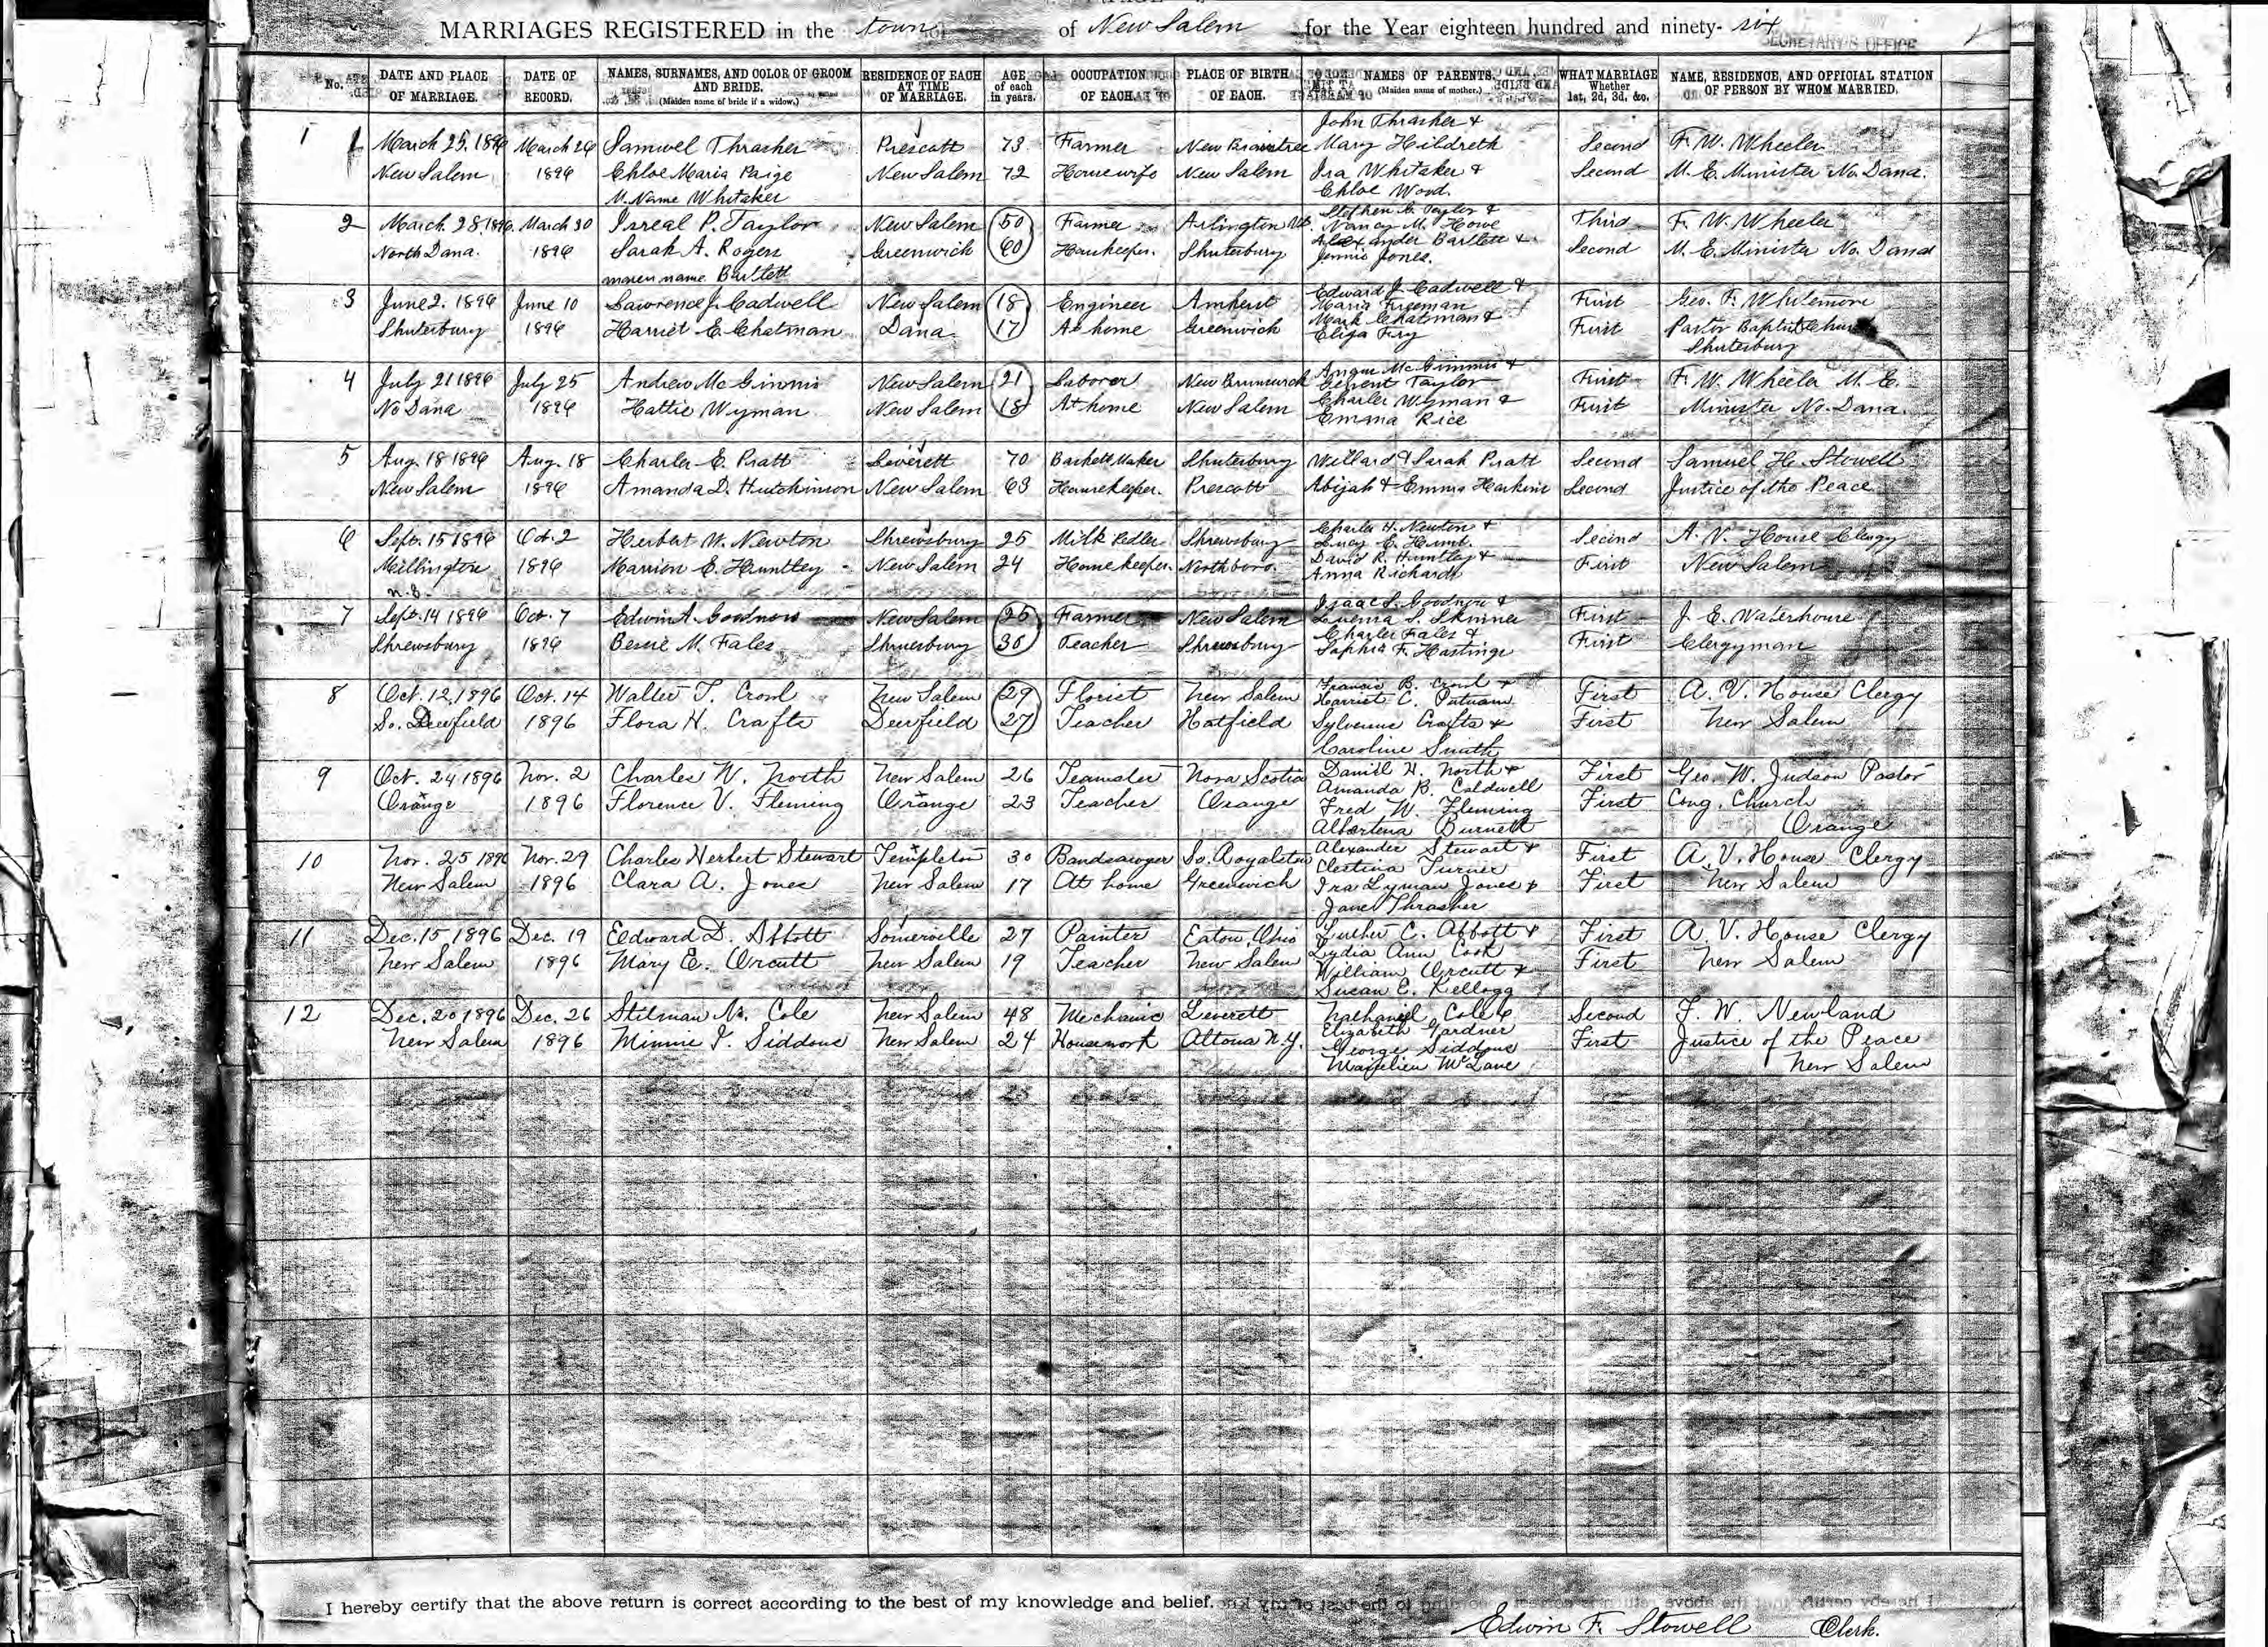 MARRIAGES REGISTERED in the town of New Salem for the Year eighteen hundred and ninety-six
SECRETARY'S OFFICE
No. DATE AND PLACE OF MARRIAGE. DATE OF RECORD. NAMES, SURNAMES, AND COLOR OF GROOM AND BRIDE. (Maiden name of bride if a widow.) RESIDENCE OF EACH AT TIME OF MARRIAGE. AGE of each in years. OCCUPATION OF EACH. PLACE OF BIRTH OF EACH. NAMES OF PARENTS. (Maiden name of mother.) WHAT MARRIAGE Whether 1st, 2d, 3d, &c. NAME, RESIDENCE, AND OFFICIAL STATION OF PERSON BY WHOM MARRIED.
John Thrasher &
1 March 25, 1896 March 26 Samuel Thrasher Prescott 73 Farmer New Braintree Mary Hildreth Second F. W. Wheeler
New Salem 1896 Chloe Maria Paige New Salem 72 Housewife New Salem Ira Whitaker & Second M. E. Minister No. Dana.
M. Name Whitaker Chloe Wood.
Stephen G. Taylor &
2 March 28, 1896. March 30 Isreal P. Taylor New Salem 50 Farmer Arlington Nancy M. Howe Third F. W. Wheeler
North Dana. 1896 Sarah A. Rogers Greenwich 60 Housekeeper. Shutesbury Alexander Bartlett & Second M. E. Minister No. Dana
maren name Bartlett Jennie Jones.
Edward J. Cadwell &
3 June 2. 1896 June 10 Lawrence J. Cadwell New Salem 18 Engineer Amherst Maria Freeman First Geo. F. Whitemore
Shutesbury 1896 Harriet E. Chatman Dana 17 At home Greenwich Mark Chatman & First Pastor Baptist Church
Eliza Fry Shutesbury
Angus McGinnis &
4 July 21 1896 July 25 Andrew McGinnis New Salem 21 Laborer New Brunswick Taylor First F. W. Wheeler M. E.
No Dana 1896 Hattie Wyman New Salem 18 At home New Salem Charles Wyman & First Minister No. Dana.
Emma Rice
5 Aug. 18 1896 Aug. 18 Charles E. Pratt Leverett 70 Baskett Maker Shutesbury Willard & Sarah Pratt Second Samuel H. Stowell
New Salem 1896 Amanda D. Hutchinson New Salem 63 Housekeeper. Prescott Abijah & Emma Haskins Second Justice of the Peace
Charles H. Newton &
6 Sept. 15 1896 Oct. 2 Herbert W. Newton Shrewsbury 25 Milk Pedler Shrewsbury Lucy E. Hunt. Second A. V. House Clergy
Millington 1896 Marrion E. Huntley New Salem 24 Homekeeper. Northboro. David R. Huntley & First New Salem
N. S. Anna Richards
Isaac S. Goodnow &
7 Sept. 14 1896 Oct. 7 Edwin A. Goodnow New Salem 25 Farmer New Salem Luenna S. Skinner First J. E. Waterhouse
Shrewsbury 1896 Bessie M. Fales Shrewsbury 30 Teacher Shrewsbury Charles Fales & First Clergyman
Sophia F. Hastings
Francis B. Crowl &
8 Oct. 12, 1896 Oct. 14 Walter T. Crowl New Salem 29 Florist New Salem Harriet C. Putnam First A. V. House Clergy
So. Deerfield 1896 Flora H. Crafts Deerfield 27 Teacher Hatfield Sylvenus Crafts & First New Salem
Caroline Smith
9 Oct. 24, 1896 Nov. 2 Charles W. North New Salem 26 Teamster Nova Scotia Daniel H. North & First Geo. W. Judson Pastor
Amanda B. Caldwell
Orange 1896 Florence V. Fleming Orange 23 Teacher Orange Fred W. Fleming First Cong. Church
Albertena Burnett Orange
10 Nov. 25 1896 Nov. 29 Charles Herbert Stewart Templeton 30 Bandsawyer So. Royalston Alexander Stewart & First A. V. House Clergy
Clestina Turner
New Salem 1896 Clara A. Jones New Salem 17 At home Greenwich Ira Lyman Jones & First New Salem
Jane Thrasher
11 Dec. 15, 1896 Dec. 19 Edward D. Abbott Somerville 27 Painter Eaton, Ohio Luther C. Abbott & First A. V. House Clergy
Lydia Ann Cook
New Salem 1896 Mary E. Orcutt New Salem 19 Teacher New Salem William Orcutt & First New Salem
Susan E. Kellogg
12 Dec. 20 1896 Dec. 26 Stilman N. Cole New Salem 48 Mechanic Leverett Nathaniel Cole & Second F. W. Newland
Elizabeth Gardner
New Salem 1896 Minnie I. Siddons New Salem 24 Housework Altona N.Y. George Siddons First Justice of the Peace
McLane New Salem
I hereby certify that the above return is correct according to the best of my knowledge and belief.
Edwin F. Stowell Clerk.